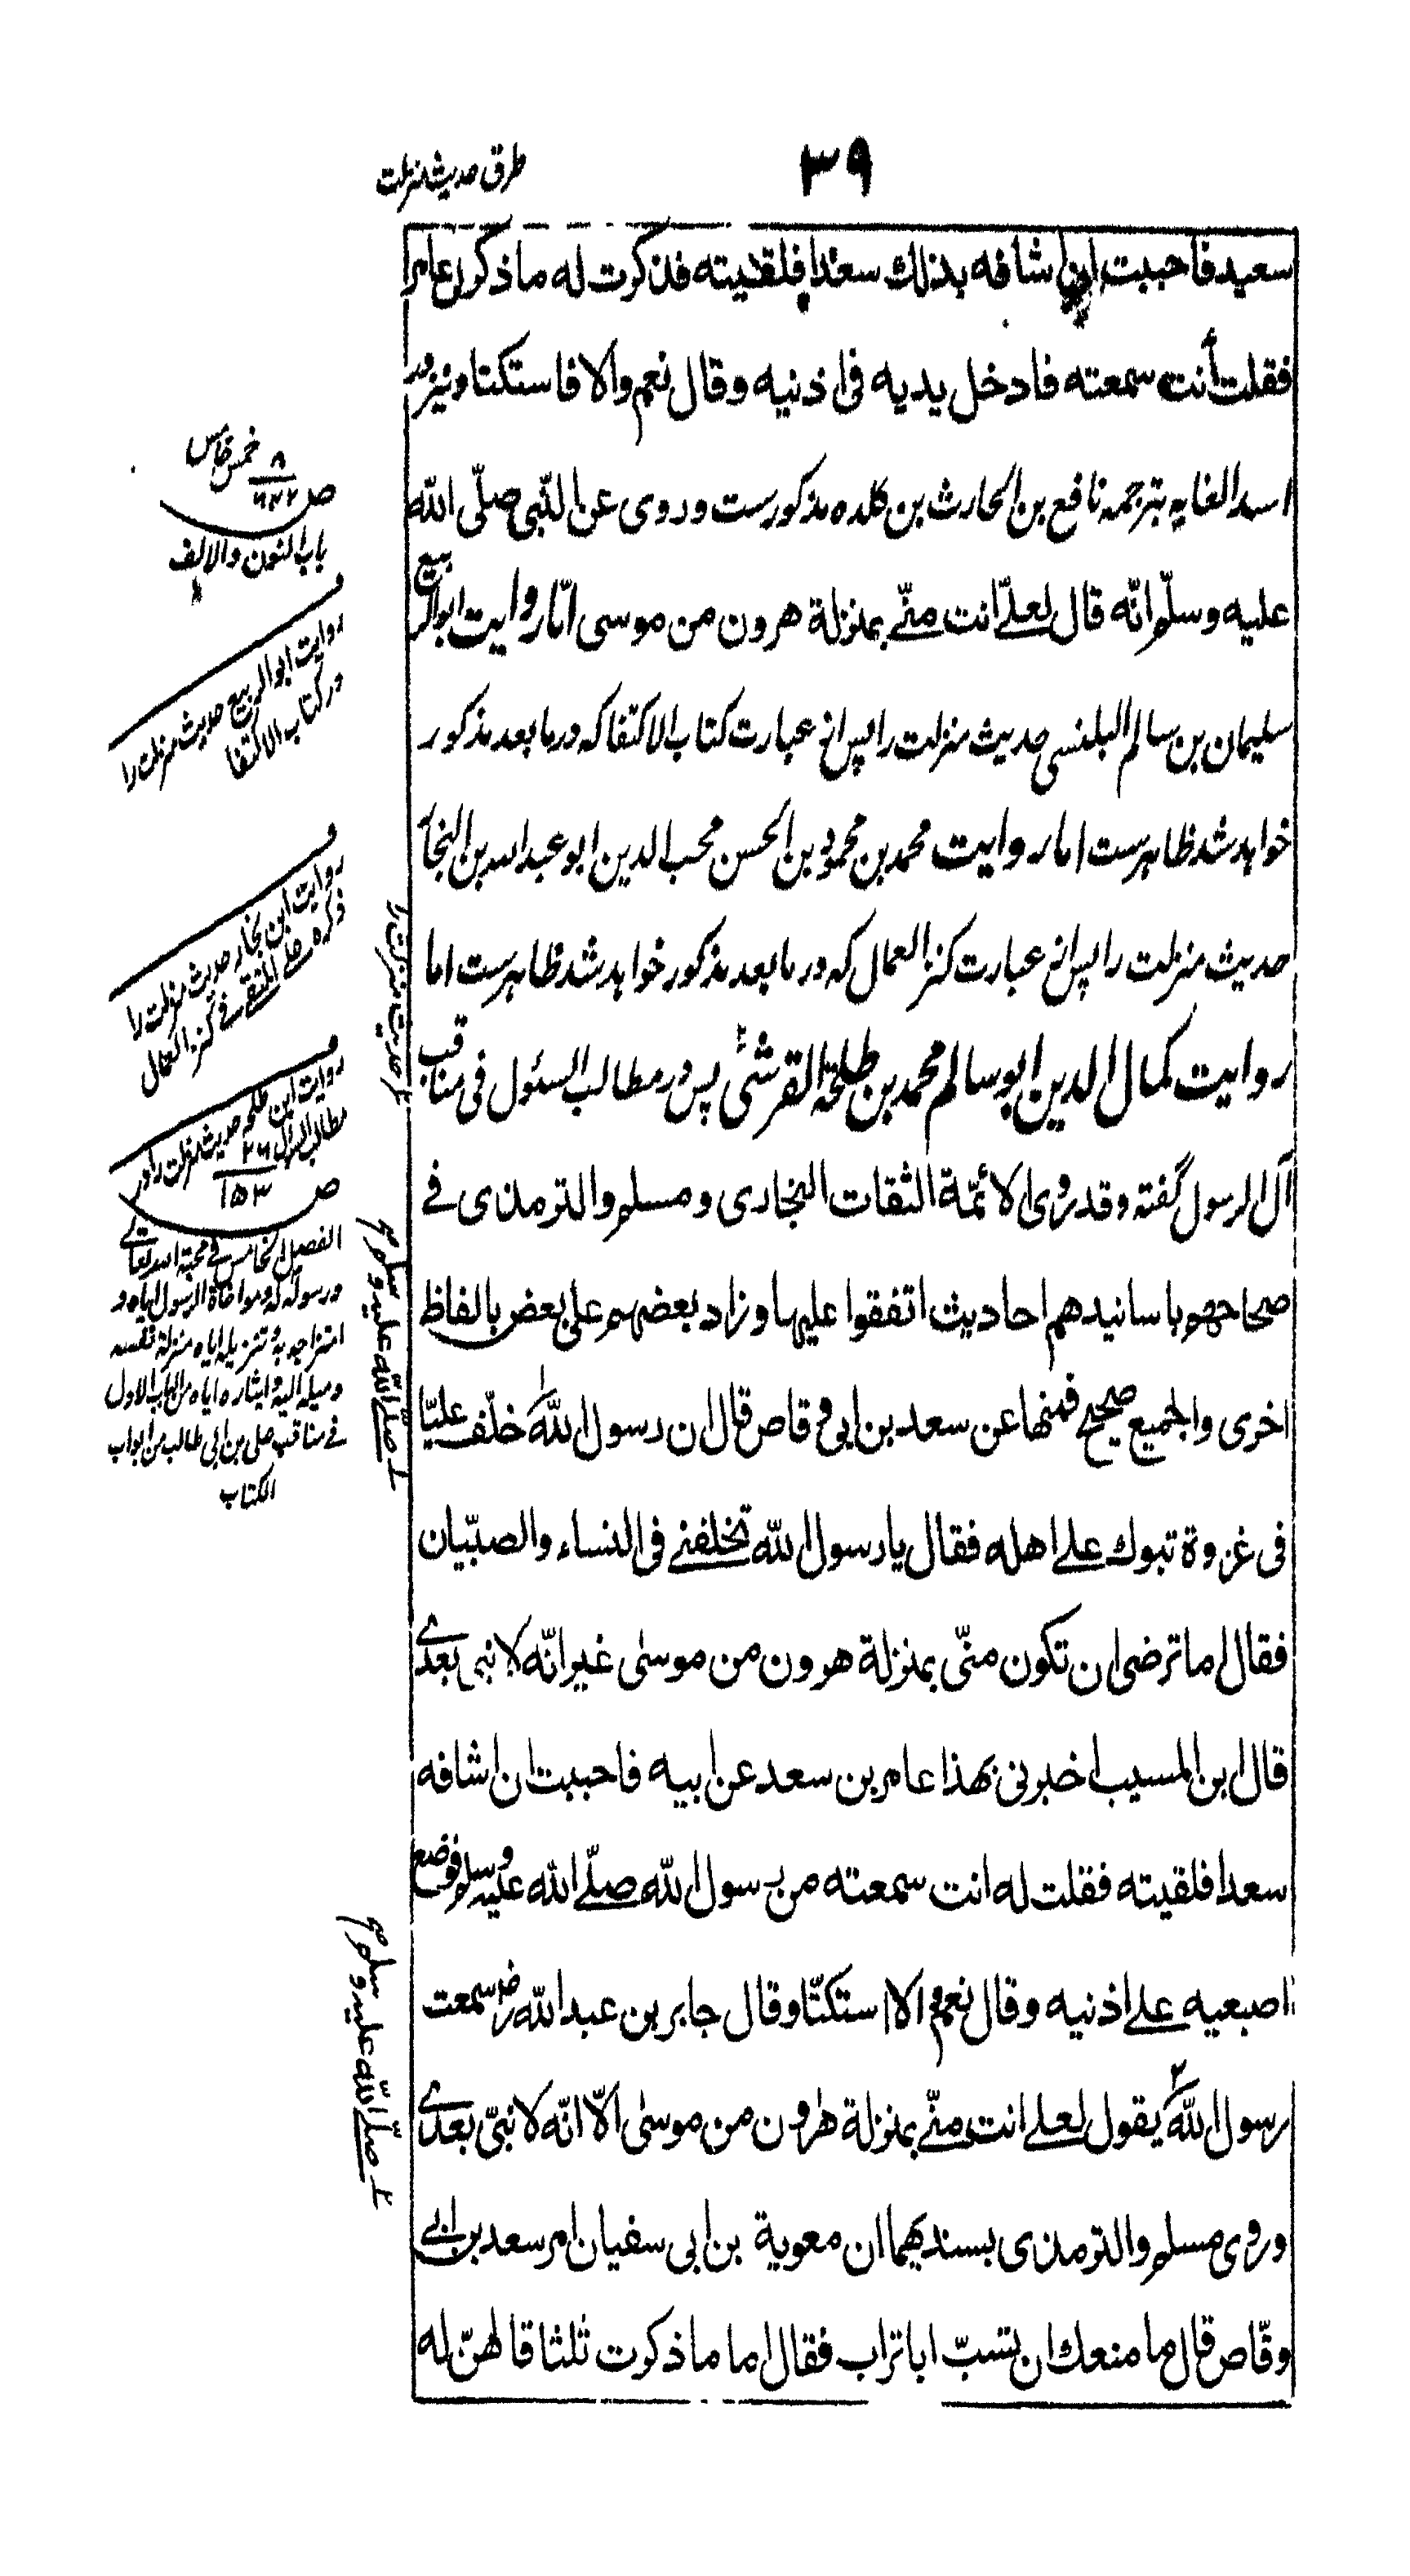 ۳۹
طرق حدیث منزلت
سعید فاحببت ان اشافه بذلك سعدا فلقیته فذکرت له ما ذکر لی عامر
فقلت أنت سمعته فادخل یدیه فی اذنیه وقال نعم والا فاستکتا ونیز در
اسد الغابه بترجمه نافع بن الحارث بن کلده مذکورست وروی عن النّبی صلّی الله
علیه وسلّم انّه قال لعلیّ انت منّی بمنزلة هرون من موسی امّا روایت ابو الربیع
سلیمان بن سالم البلنسی حدیث منزلت را پس از عبارت کتاب الاکتفا که در ما بعد مذکور
خواهد شد ظاهرست اما روایت محمد بن محمود بن الحسن محب الدین ابو عبد الله بن النجار
حدیث منزلت را پس از عبارت کنز العمال که در ما بعد مذکور خواهد شد ظاهرست اما
روایت کمال الدین ابو سالم محمد بن طلحة القرشی پس در مطالب السئول فی مناقب
آل الرسول گفته وقد روی الائمّة الثقات البخاری ومسلم والترمذی فی
صحاحهم باسانیدهم احادیث اتفقوا علیها وزاد بعضهم علی بعض بالفاظ
اخری والجمیع صحیح فمنها عن سعد بن ابی وقاص قال ان رسول الله خلّف علیّا
فی غزوة تبوك علی اهله فقال یا رسول الله تخلفنی فی النساء والصبّیان
فقال اما ترضی ان تکون منّی بمنزلة هرون من موسیٰ غیر انّه لا نبی بعدی
قال ابن المسیب اخبرنی بهذا عامر بن سعد عن ابیه فاحببت ان اشافه
سعدا فلقیته فقلت له انت سمعته من رسول الله صلّی الله علیه وسلم فوضع
اصبعیه علی اذنیه وقال نعم والا استکتّا وقال جابر بن عبد الله رضـ سمعت
رسول الله یقول لعلی انت منّی بمنزلة هٰرون من موسیٰ الّا انّه لا نبیّ بعدی
وروی مسلم والترمذی بسندیهما ان معویة بن ابی سفیان امر سعد بن ابی
وقّاص قال ما منعك ان تسبّ ابا تراب فقال اما ما ذکرت ثلثا قالهنّ له
خمس خامس
باب النون والالف
روایت ابو الربیع حدیث منزلت را
در کتاب الاکتفا
روایت ابن نجار حدیث منزلت را
ذکره علی المتقی فی کنز العمال
روایت ابن طلحه حدیث منزلت را در
مطالب السؤل ۲۶
ص ۱۵۳
الفصل الخامس فی محبة الله تعالی
ورسوله له ومواخاة الرسول ایاه و
امتزاجه به وتنزیله ایاه منزلة نفسه
ومیله الیه وایثاره ایاه من الباب الاول
فی مناقب علی بن ابی طالب من ابواب
الکتاب
حدیث منزلت را
صلّی الله علیه وسلم
صلّی الله علیه وسلم